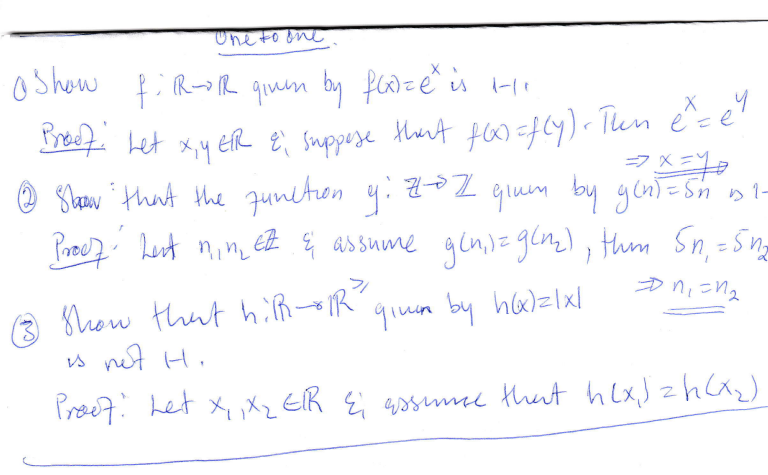 One to one.
① Show f: ℝ→ℝ given by f(x)=eˣ is 1-1.
Proof: Let x,y ∈ ℝ & suppose that f(x)=f(y). Then eˣ=eʸ
⇒ x=y
② Show that the function g: ℤ→ℤ given by g(n)=5n is 1-
Proof: Let n₁,n₂ ∈ ℤ & assume g(n₁)=g(n₂), then 5n₁=5n₂
⇒ n₁=n₂
③ Show that h: ℝ→ℝ^≥ given by h(x)=|x|
is not 1-1.
Proof: Let x₁,x₂ ∈ ℝ & assume that h(x₁)=h(x₂)